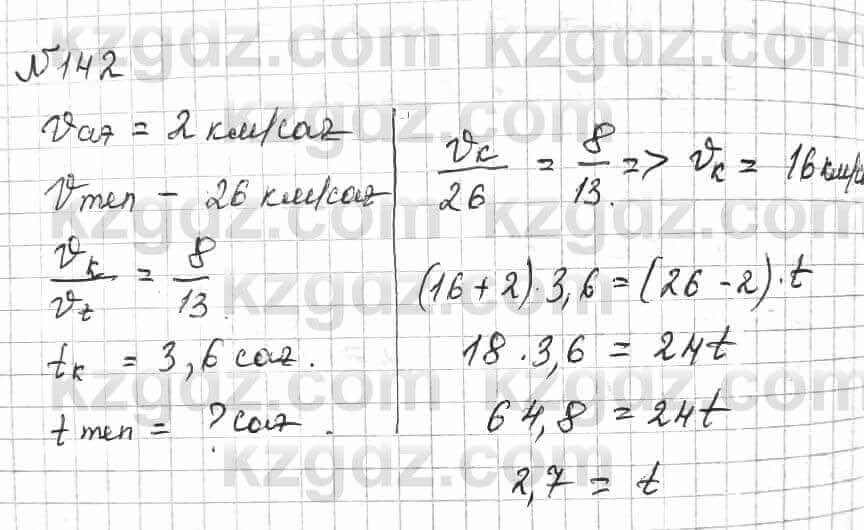 №142
v_аз = 2 км/сағ
v_теп - 26 км/сағ
v_к/v_t = 8/13
t_к = 3,6 сағ.
t теп = ? сағ.
v_к/26 = 8/13. => v_к = 16 км/
(16+2)·3,6=(26-2)·t
18·3,6 = 24t
64,8 = 24t
2,7 = t
kzgdz.com